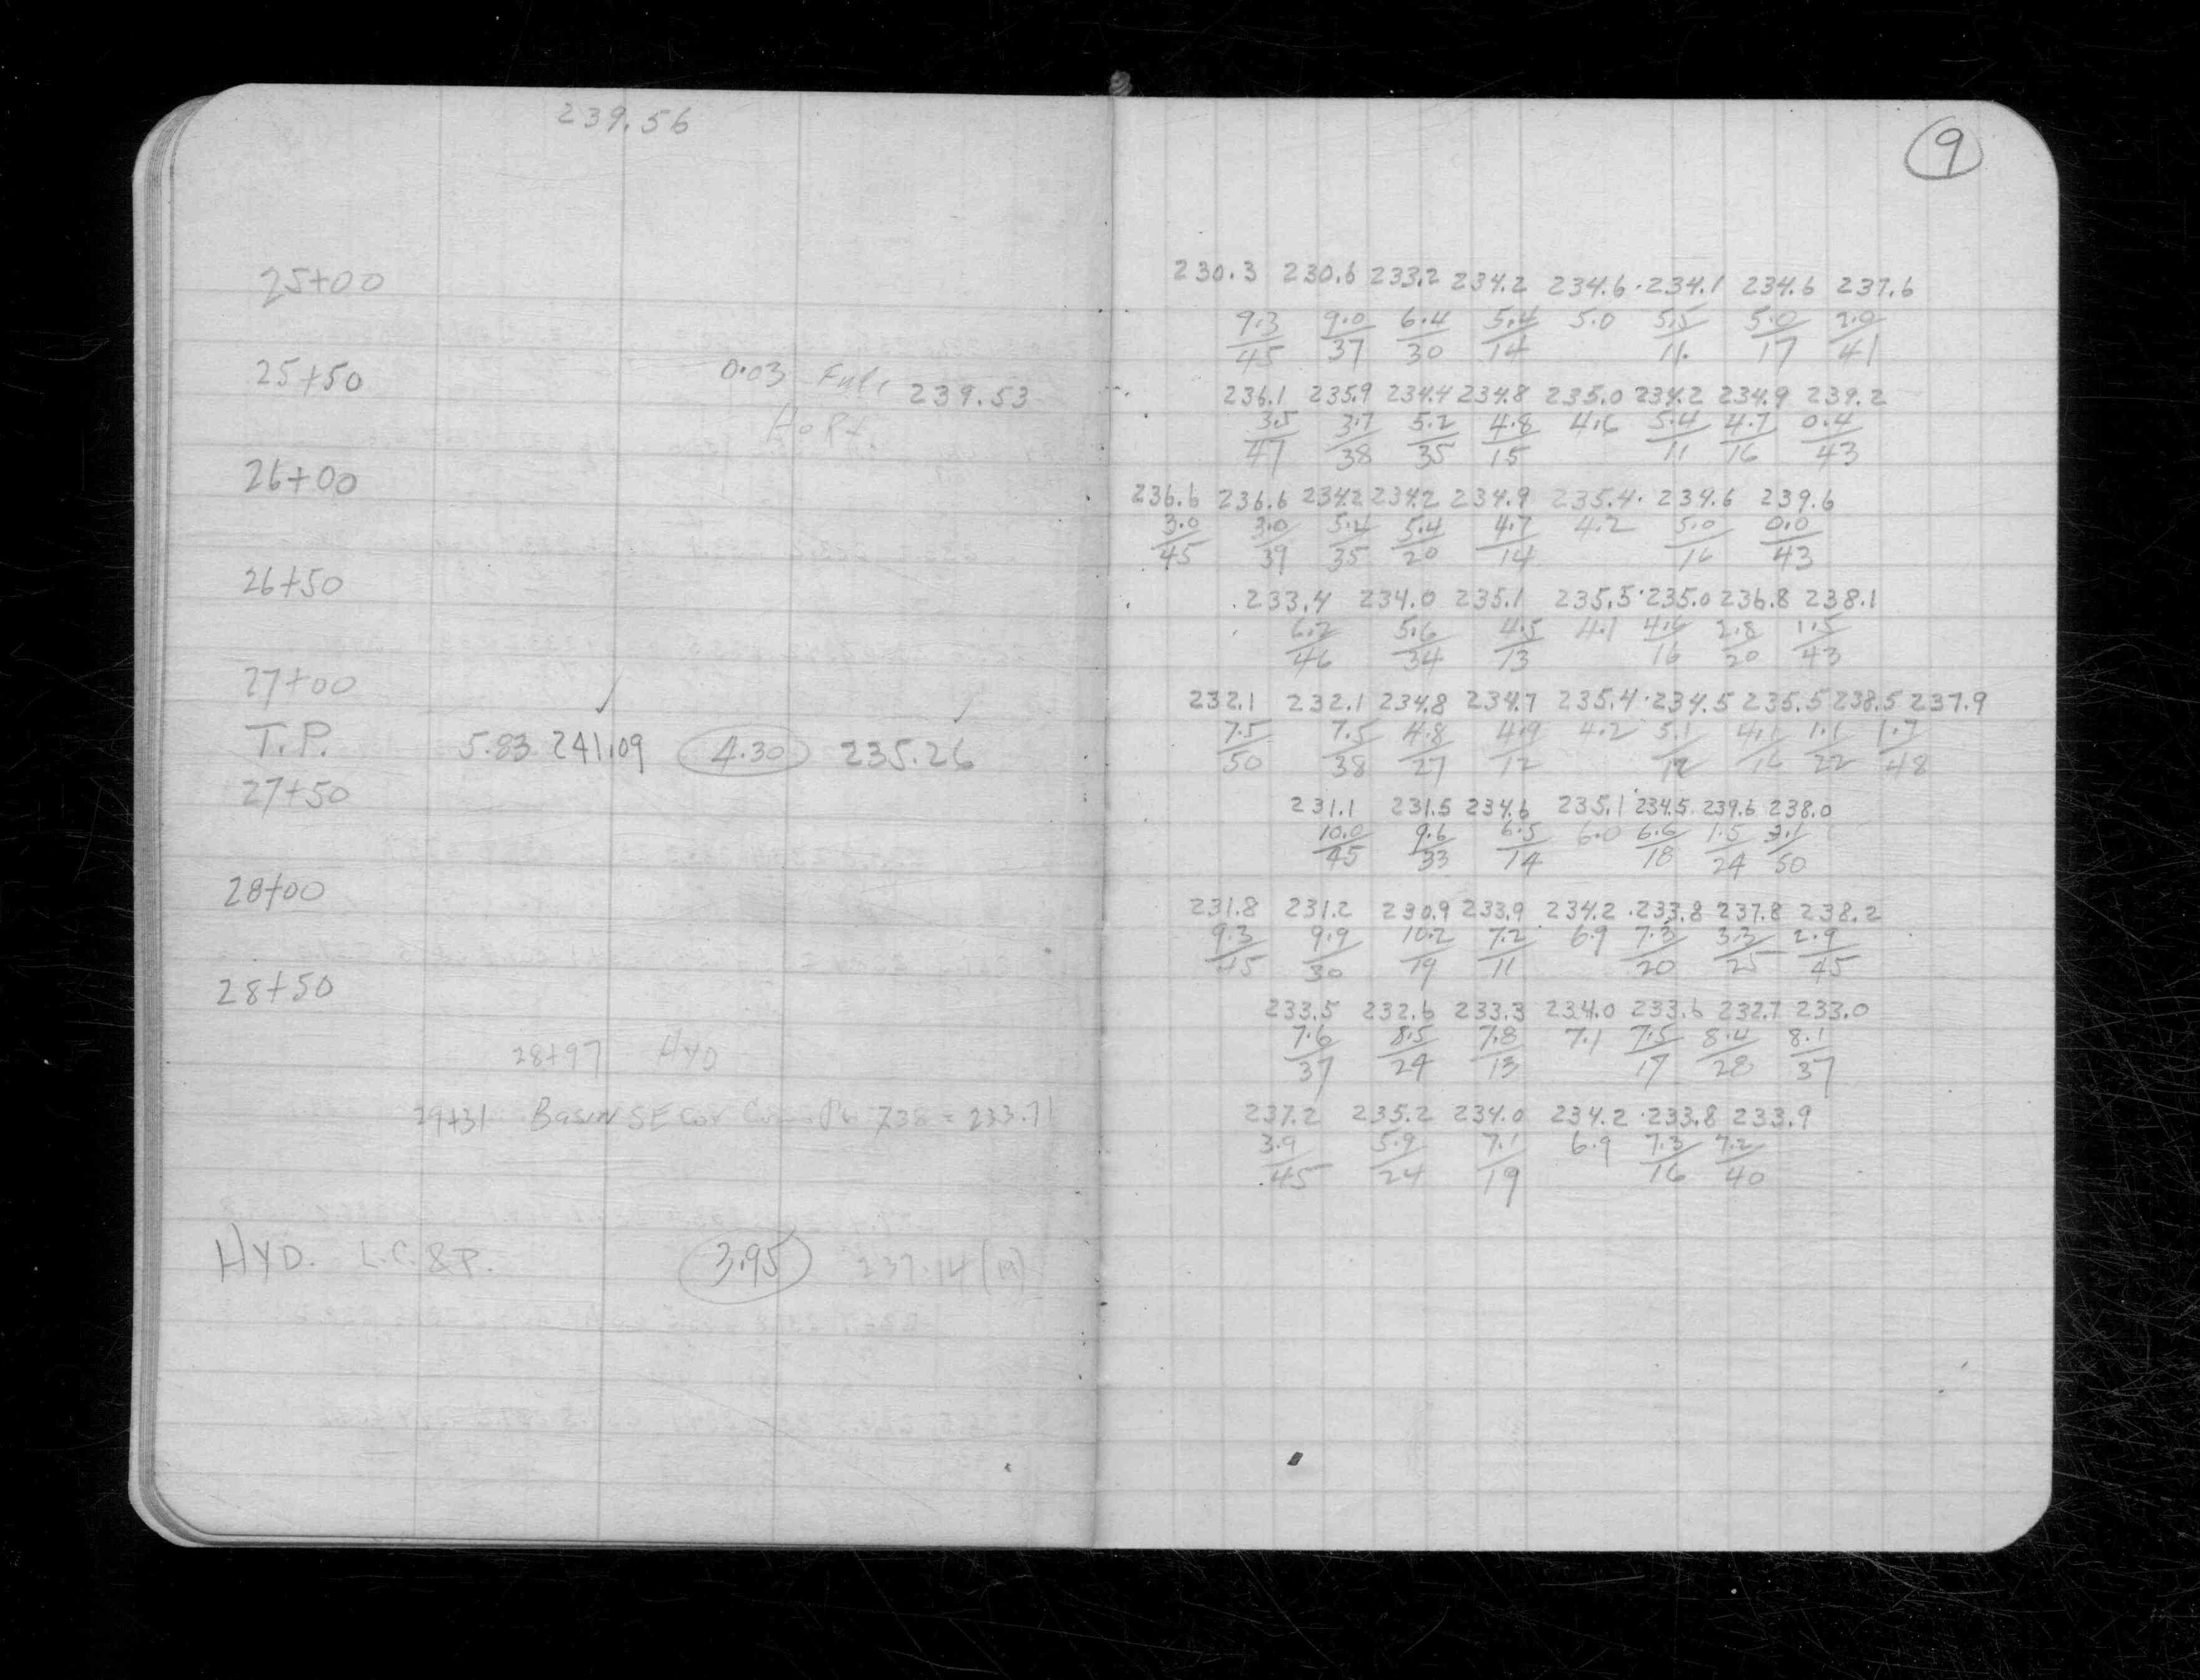 239.56
25+00
25+50 0.03 239.53
26+00
26+50
27+00
T.P. 5.83 241.09 4.30 235.26
27+50
28+00
28+50
28+97 HYD
29+31 BASIN SE Cor 7.38 = 233.71
HYD. L.C.&P. 3.95 237.14
9
230.3 230.6 233.2 234.2 234.6 234.1 234.6 237.6
9.3 9.0 6.4 5.4 5.0 5.5 5.0 2.0
45 37 30 14 11 17 41
236.1 235.9 234.4 234.8 235.0 234.2 234.9 239.2
3.5 3.7 5.2 4.8 4.6 5.4 4.7 0.4
47 38 35 15 11 16 43
236.6 236.6 234.2 234.2 234.9 235.4 234.6 239.6
3.0 3.0 5.4 5.4 4.7 4.2 5.0 0.0
45 39 35 20 14 16 43
233.4 234.0 235.1 235.5 235.0 236.8 238.1
6.2 5.6 4.5 4.1 4.6 2.8 1.5
46 34 13 16 20 43
232.1 232.1 234.8 234.7 235.4 234.5 235.5 238.5 237.9
7.5 7.5 4.8 4.9 4.2 5.1 4.1 1.1 1.7
50 38 27 12 12 16 22 48
231.1 231.5 234.6 235.1 234.5 239.6 238.0
10.0 9.6 6.5 6.0 6.6 1.5 3.1
45 33 14 18 24 50
231.8 231.2 230.9 233.9 234.2 233.8 237.8 238.2
9.3 9.9 10.2 7.2 6.9 7.3 3.3 2.9
45 30 19 11 20 25 45
233.5 232.6 233.3 234.0 233.6 232.7 233.0
7.6 8.5 7.8 7.1 7.5 8.4 8.1
37 24 13 17 28 37
237.2 235.2 234.0 234.2 233.8 233.9
3.9 5.9 7.1 6.9 7.3 7.2
45 24 19 16 40